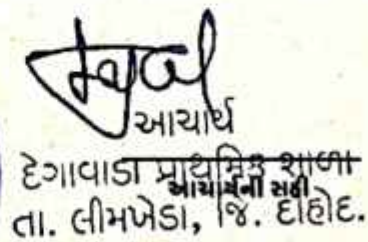 આચાર્ય
દેગાવાડા પ્રાથમિક શાળા
આચાર્યની સહી
તા. લીમખેડા, જિ. દાહોદ.